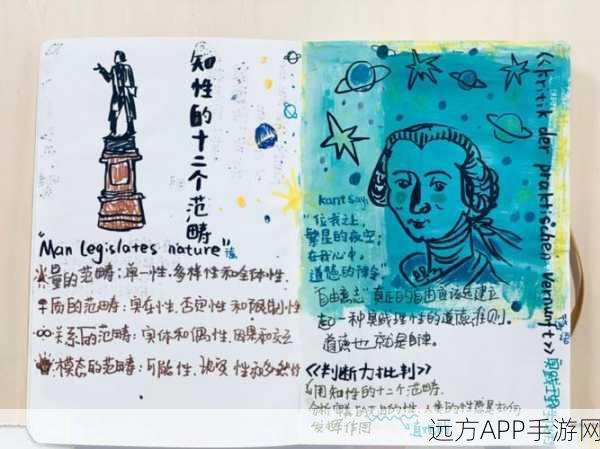 知性的十二个范畴
"Man legislates nature"
量的范畴：单一性，多样性和全体性.
质的范畴：实在性，否定性和限制性
关系的范畴：实体和偶性，因果和交互
模态的范畴：可能性，现实性和必然性
Kant say:
"位我之上，
繁星的夜空；
在我心中，
道德的律令"
"自由意志"真正的自由应该是建立
起一种具威理性的道德准则.
道德也就是自律.
《Kritik der praktischen Vernunft》
《判断力批判》
用知性的十二个范畴.
发挥作用
远方APP手游网